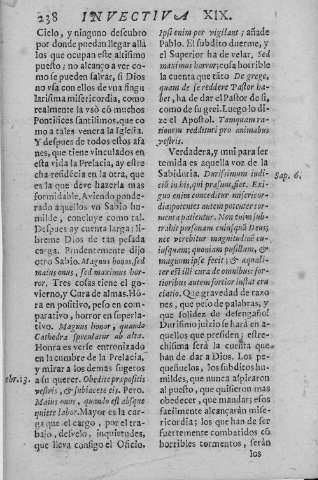 238 INVECTIVA XIX.
Cielo, y ninguno descubro
por donde puedan llegar allá
los que ocupan este altisimo
puesto; no alcanço a ver co-
mo se pueden salvar, si Dios
no vsa con ellos de vna fingu
larissima misericordia, como
realmente la vsò cō muchos
Pontifices santissimos, que co
mo a tales venera la Iglesia.
Y despues de todos estos afa
nes, que tiene vinculados en
esta vida la Prelacia, ay estre
cha residécia en la otra, que
es la que deve hazerla mas
formidable. Aviendo ponde-
rado aquellos vn Sabio humil
de, concluye como tal.
Despues ay cuenta larga: li-
breme Dios de tan pesada
carga. Prudentemente dijo
otro Sabio. Magnus honos, sed
maius onus, sed maximus hor-
ror. Tres cosas tiene el go-
vierno, y Cura de almas. Hō
ra en positivo, peso en com-
parativo, horror en superla-
tivo. Magnus honor, quando
Cathedra speculatur ab alta.
Honra es verse entronizado
en la cumbre de la Prelacia,
y mirar a los demás sugetos
a su querer. Obedite præpositis
vestris, & subiacete eis. Pero.
Maius onus, quando est absque
quiete labor. Mayor es la car-
ga que el cargo, por el tra-
bajo, desvelo, inquietudes,
que lleva consigo el Oficio.
ebr. 13.
Ipsi enim per vigilant; añade
Pablo. El subdito duerme, y
el Superior ha de velar. Sed
maximus horror; cosa horrible
la cuenta que táto De grege,
quam de se reddere Pastor ha-
bet, ha de dar el Pastor de si,
como de su grei. Luego lo di-
ze el Apostol. Tamquam ra-
tionem reddituri pro animabus
vestris.
Verdadera, y mui para ser
temida es aquella voz de la
Sabiduria. Durissimum iudi-
ciū in his, qui præsunt, fiet. Exi-
guo enim conceditur misericor-
dia; potentes autem potenter tor-
menta patientur. Non enim sub-
trahit personam cuiusquā Deus,
nec verebitur magnitudinē cu-
iusquam: quoniam pusillum, &
magnum ipse fecit; & æquali-
ter est illi cura de omnibus: for-
tioribus autem fortior instat cru
ciatio. Que gravedad de razo
nes, que peso de palabras, y
que solidez de desengaño!
Durissimo juizio se hará en a-
quellos que presiden; estre-
chissima será la cuenta que
han de dar a Dios. Los pe-
queñuelos, los subditos hu-
mildes, que nunca aspiraron
al puesto, que quisieron mas
obedecer, que mandar; essos
facilmente alcançarán mise-
ricordia; los que han de ser
fuertemente combatidos cō
horribles tormentos, serán
los
Sap. 6.